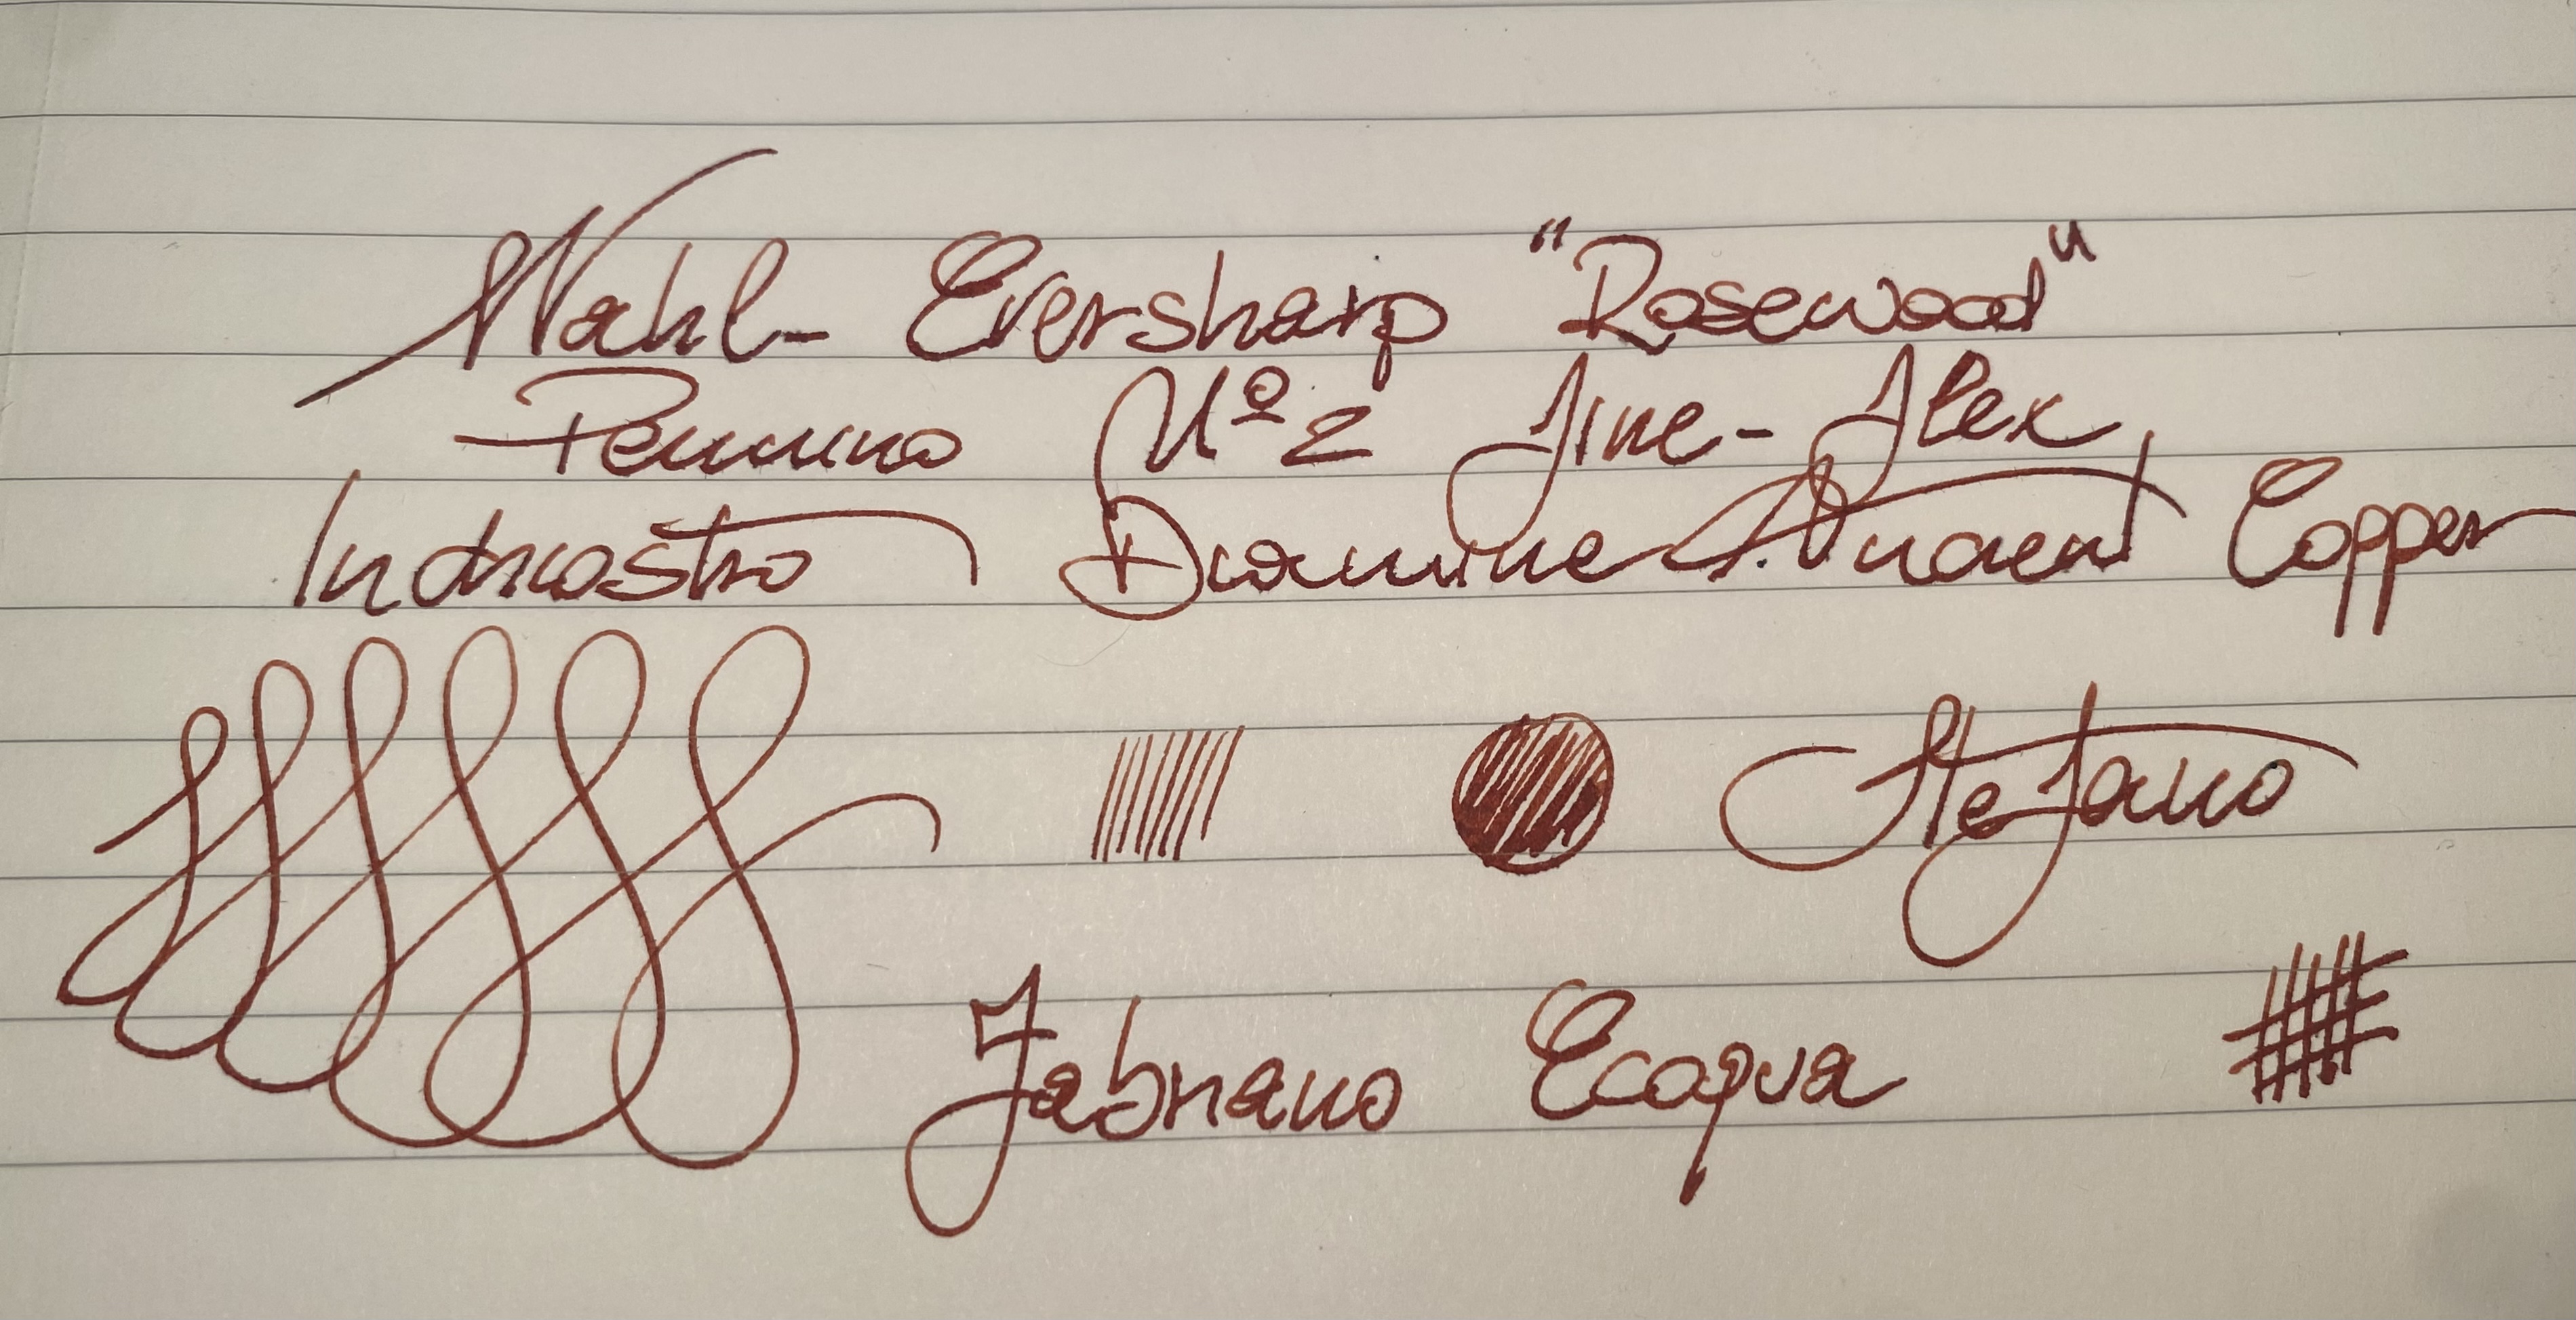 Wahl-Eversharp "Rosewood"
Pennino Nº 2 Fine-Flex
Inchiostro Diamine Ancient Copper
Stefano
Fabriano Ecoqua